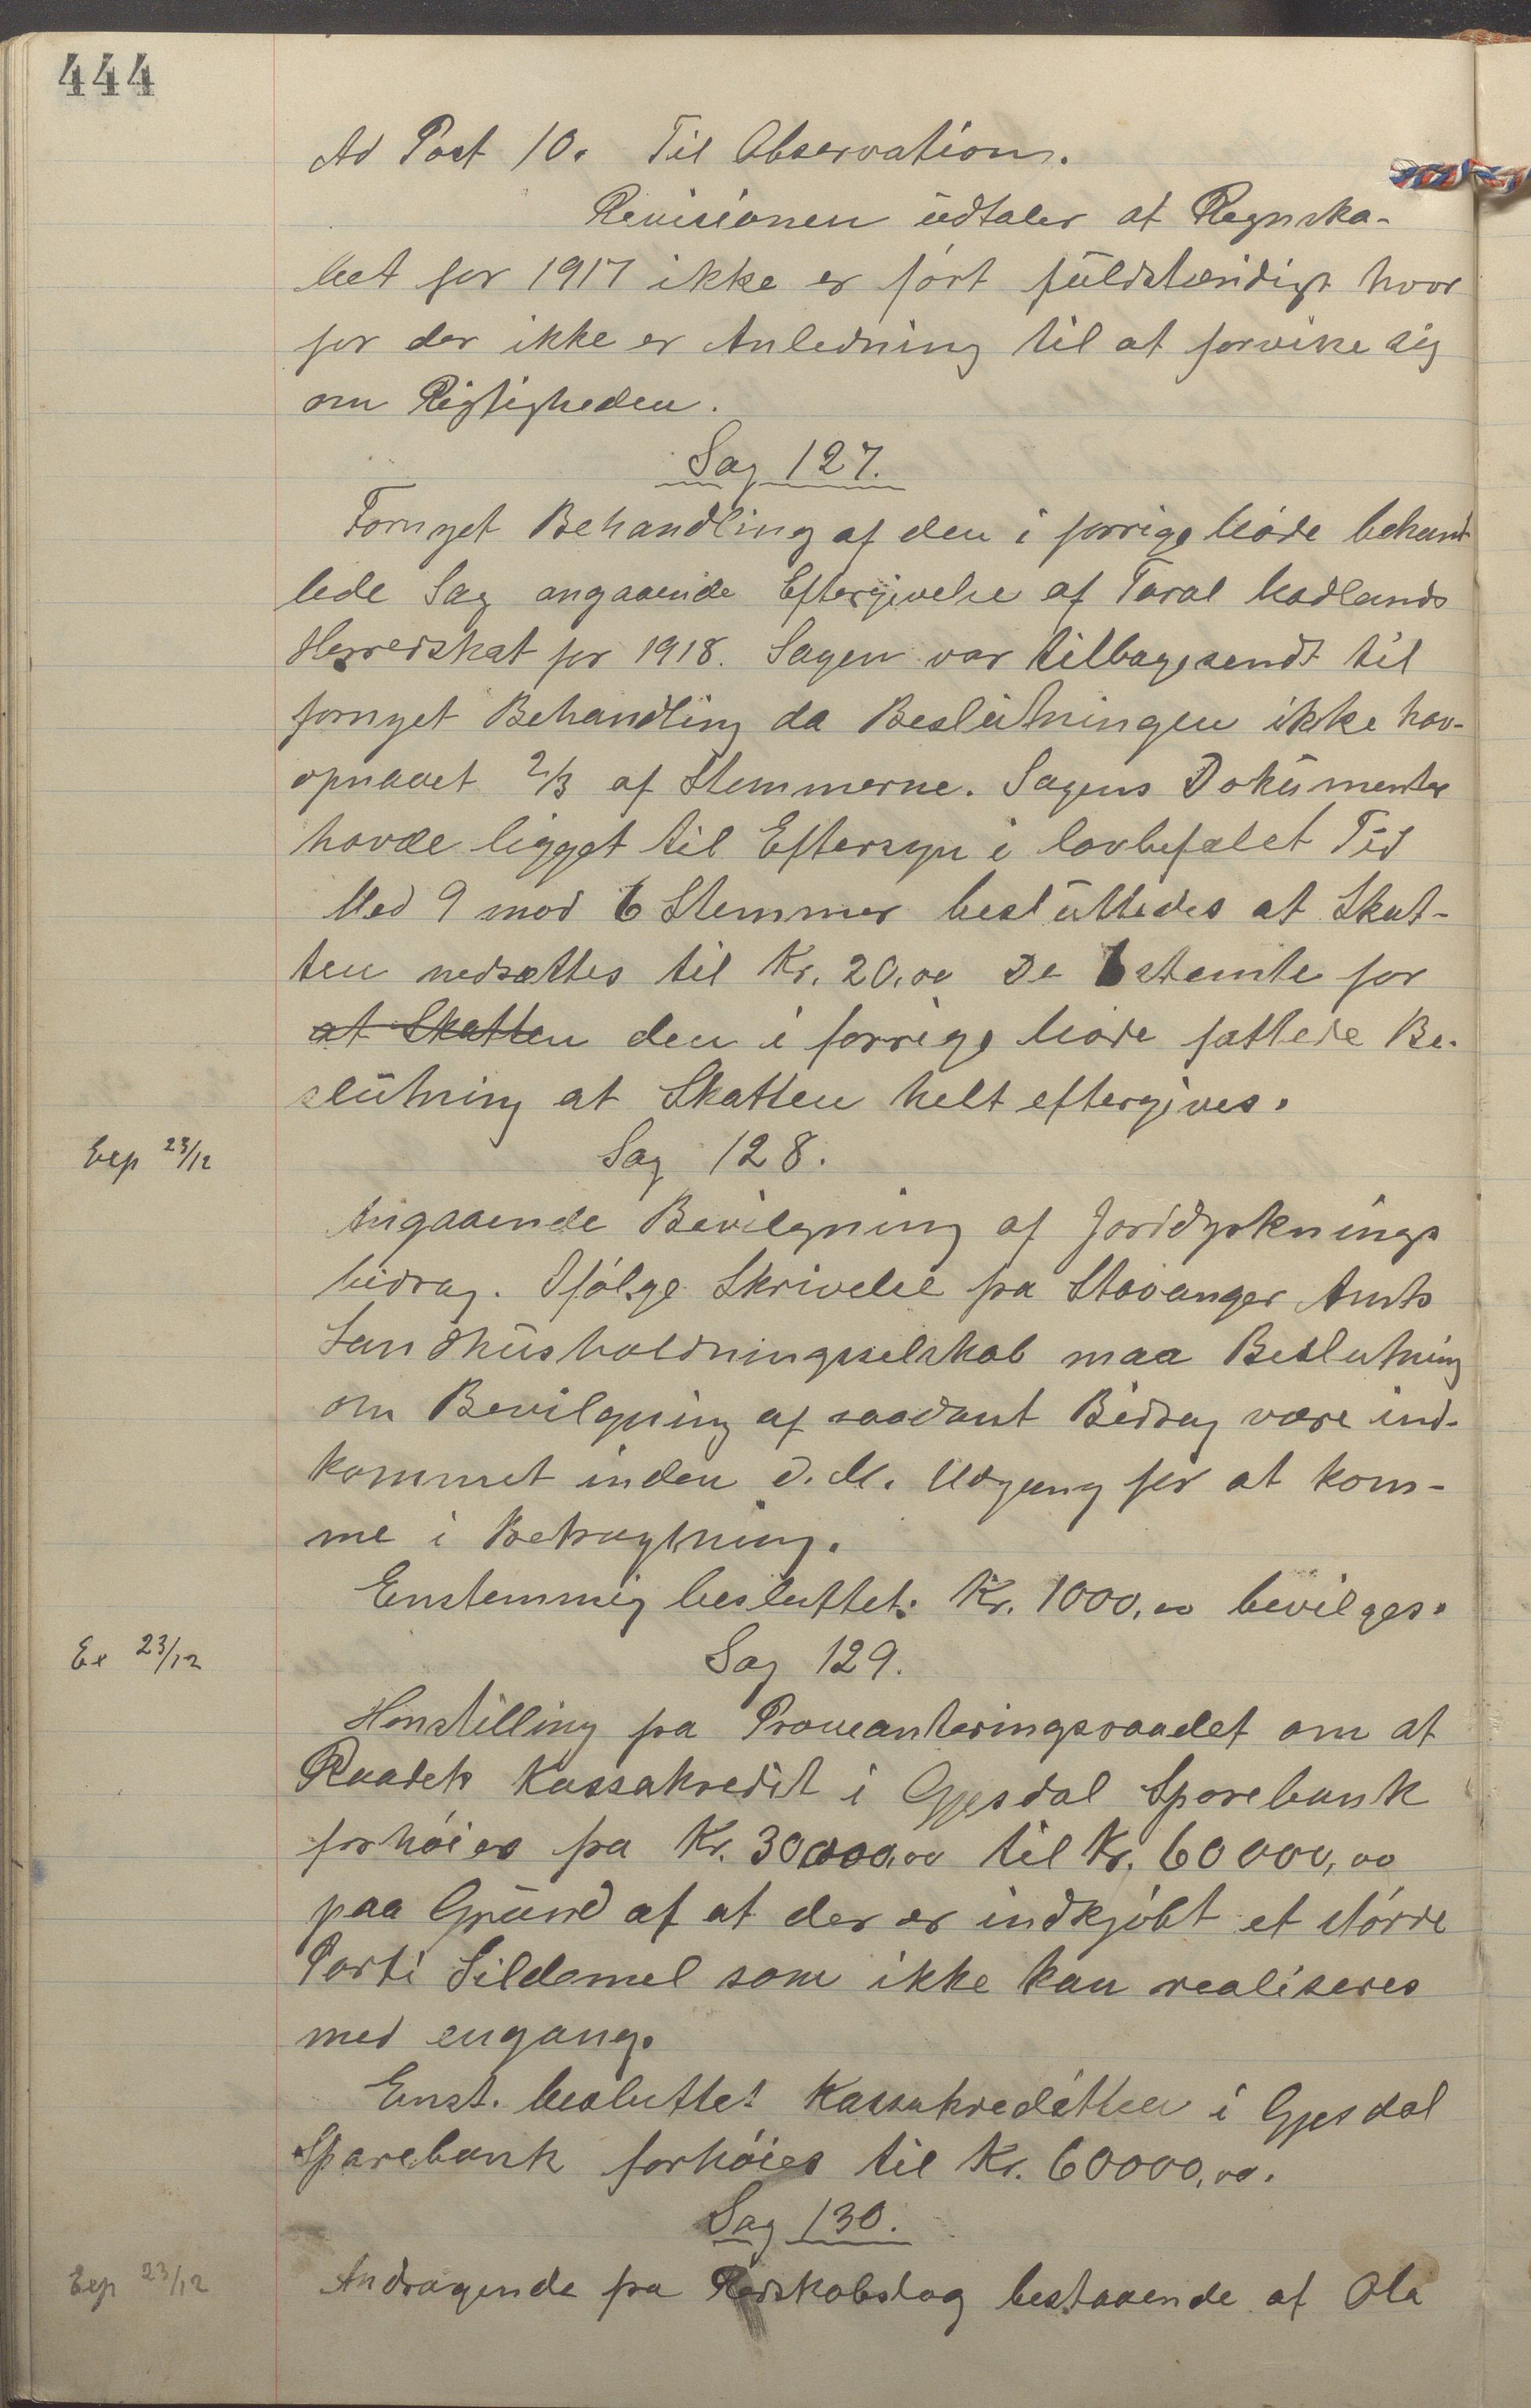 444
Ad Post 10. Til Observation.
Revisionen udtaler at Regnska-
bet for 1917 ikke er ført fuldstændigt hvor
for der ikke er Anledning til at forvisse sig
om Rigtigheden.
Sag 127.
Fornyet Behandling af den i forrige Møde behand-
lede Sag angaaende Eftergivelse af Taral Madlands
Herredskat for 1918. Sagen var tilbagesendt til
fornyet Behandling da Beslutningen ikke hav-
opnaaet 2/3 af Stemmerne. Sagens Dokumenter
havde ligget til Eftersyn i lovbefalet Tid
Med 9 mod 6 Stemmer besluttedes at Skat-
ten nedsættes til Kr. 20,00 De 6 stemte for
at Skatten den i forrige Møde fattede Be-
slutning at Skatten helt eftergives.
Exp 23/12
Sag 128.
Angaaende Bevilgning af Jorddyrknings
bidrag. Ifølge Skrivelse fra Stavanger Amts
Landhusholdningsselskab maa Beslutning
om Bevilgning af saadant Bidrag være ind-
kommet inden d. M. Udgang for at kom-
me i Betragtning.
Enstemmig besluttet: Kr. 1000,00 bevilges.
Ex 23/12
Sag 129.
Henstilling fra Provianteringsraadet om at
Raadets Kassakredit i Gjesdal Sparebank
forhøies fra Kr. 30000,00 til Kr. 60000,00
paa Grund af at der er indkjøbt et større
Parti Sildemel som ikke kan realiseres
med engang.
Enst. besluttet Kassakreditten i Gjesdal
Sparebank forhøies til Kr. 60000,00.
Sag 130.
Exp 23/12
Andragende fra Redskabslag bestaaende af Ola